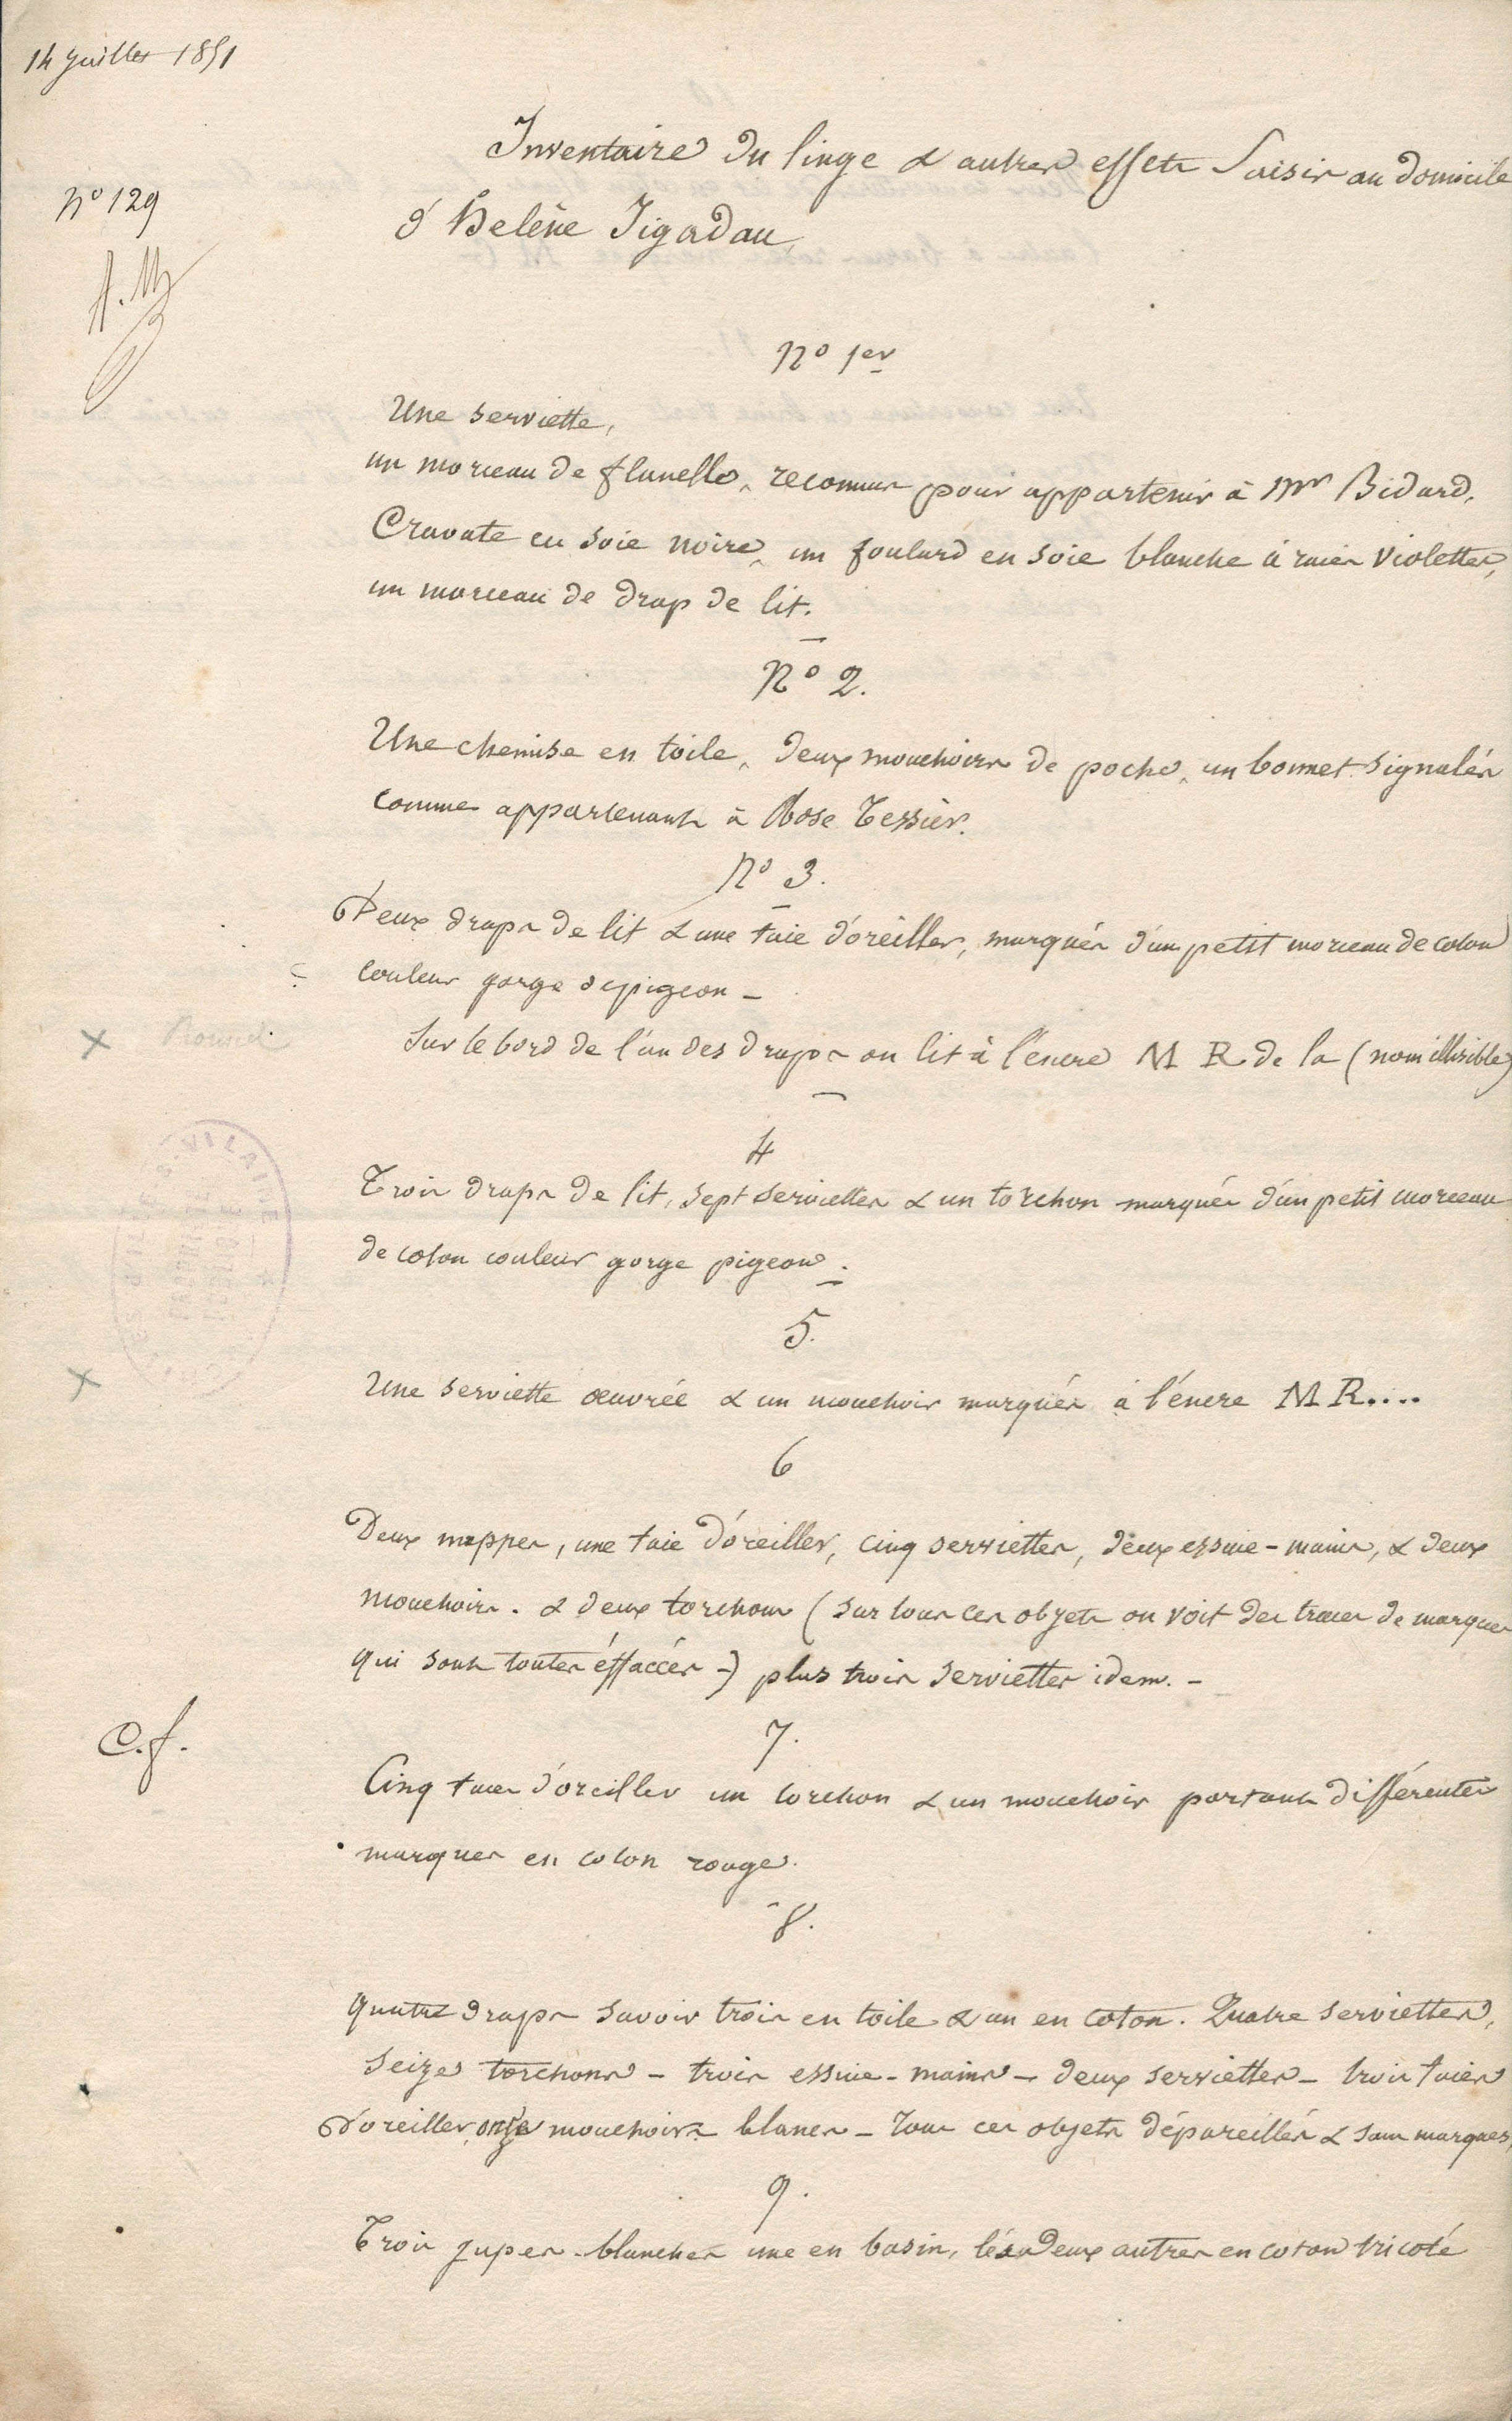 14 juillet 1851
Inventaire du linge & autres effets saisis au domicile
n° 129
d'helène Jigadau
n° 1er
Une serviette,
un morceau de flanelle, reconnus pour appartenir à Mr Bidard,
Cravate en soie noire, un foulard en soie blanche à raies violettes,
un morceau de drap de lit.
N° 2.
Une chemise en toile, deux mouchoirs de poche, un bonnet signalés
comme appartenants à Rose Tessier.
N° 3.
Deux draps de lit & une taie d'oreiller, marqués d'un petit morceau de coton
couleur gorge de pigeon -
Sur le bord de l'un des draps on lit à l'encre M R de la (nom illisible)
4
Trois draps de lit, sept serviettes & un torchon marqués d'un petit morceau
de coton couleur gorge pigeon.
5.
Une serviette œuvrée & un mouchoir marqués à l'encre M R....
6
Deux nappes, une taie d'oreiller, cinq serviettes, deux essuie-mains, & deux
mouchoirs. & deux torchons (sur tous ces objets on voit des traces de marques
qui sont toutes éffacées -) plus trois serviettes idem. -
C.f.
7.
Cinq taies d'oreiller un torchon & un mouchoir portants différentes
marques en coton rouge.
8.
quatre draps savoir trois en toile & un en coton. Quatre serviettes,
Seize torchons - trois essuie-mains - deux serviettes - trois taies
d'oreiller, onze mouchoirs blancs - tous ces objets dépareillés & sans marques,
9.
Trois jupes blanches une en basin, les deux autres en coton tricoté